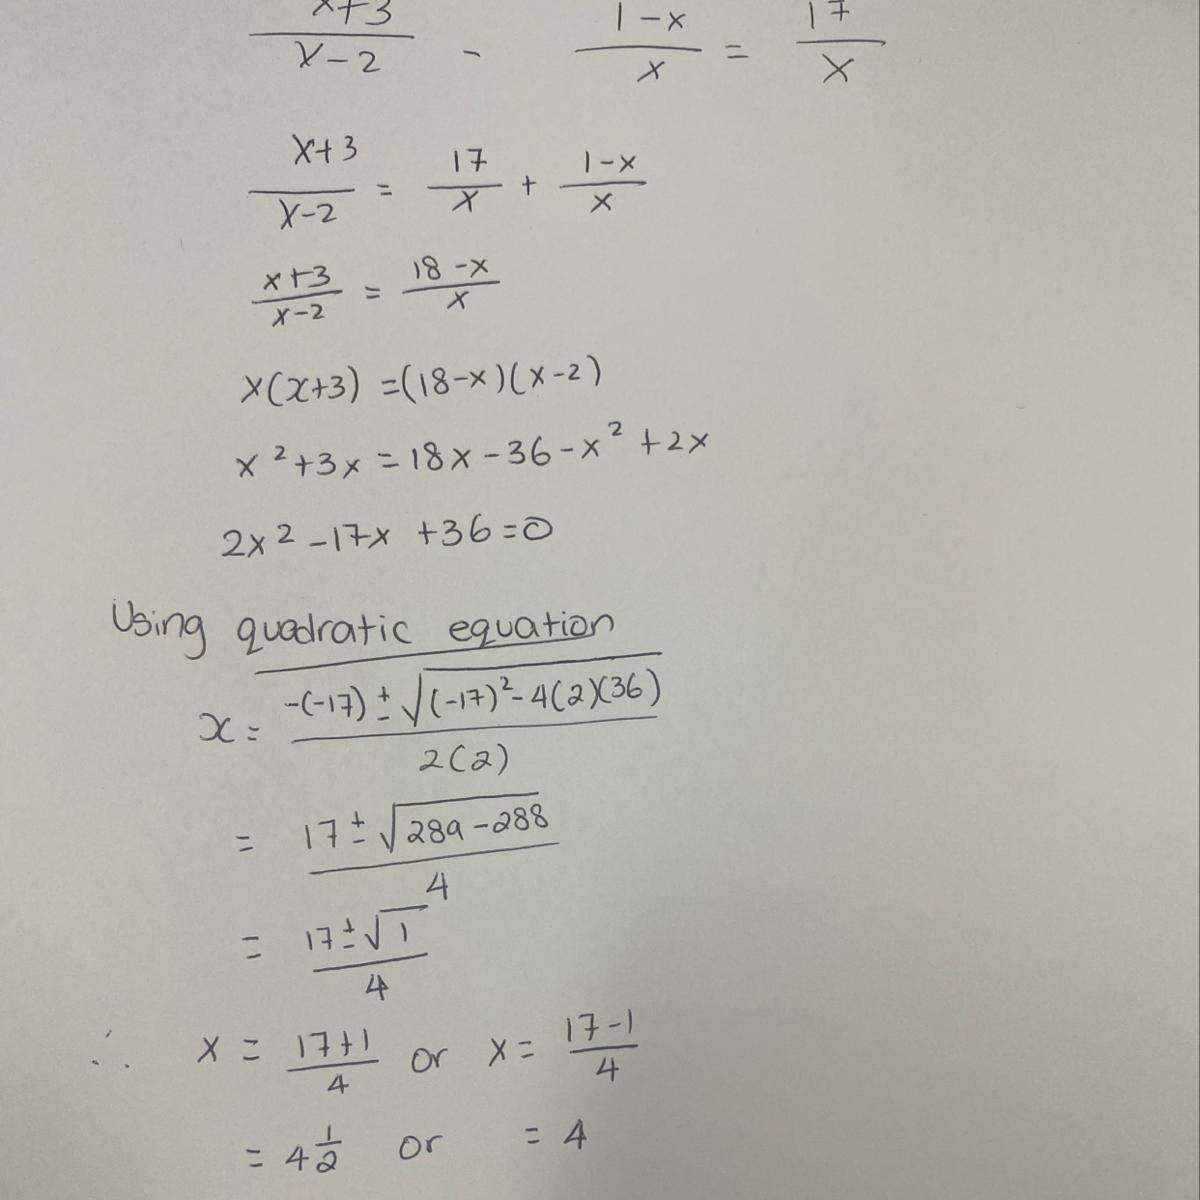 x+3/x-2 - 1-x/x = 17/x
x+3/x-2 = 17/x + 1-x/x
x+3/x-2 = 18-x/x
x(x+3) = (18-x)(x-2)
x²+3x = 18x-36-x²+2x
2x²-17x+36=0
Using quadratic equation
x = -(-17)±√(-17)²-4(2)(36)/2(2)
= 17±√289-288/4
= 17±√1/4
∴ x = 17+1/4 or x = 17-1/4
= 4 1/2 or = 4